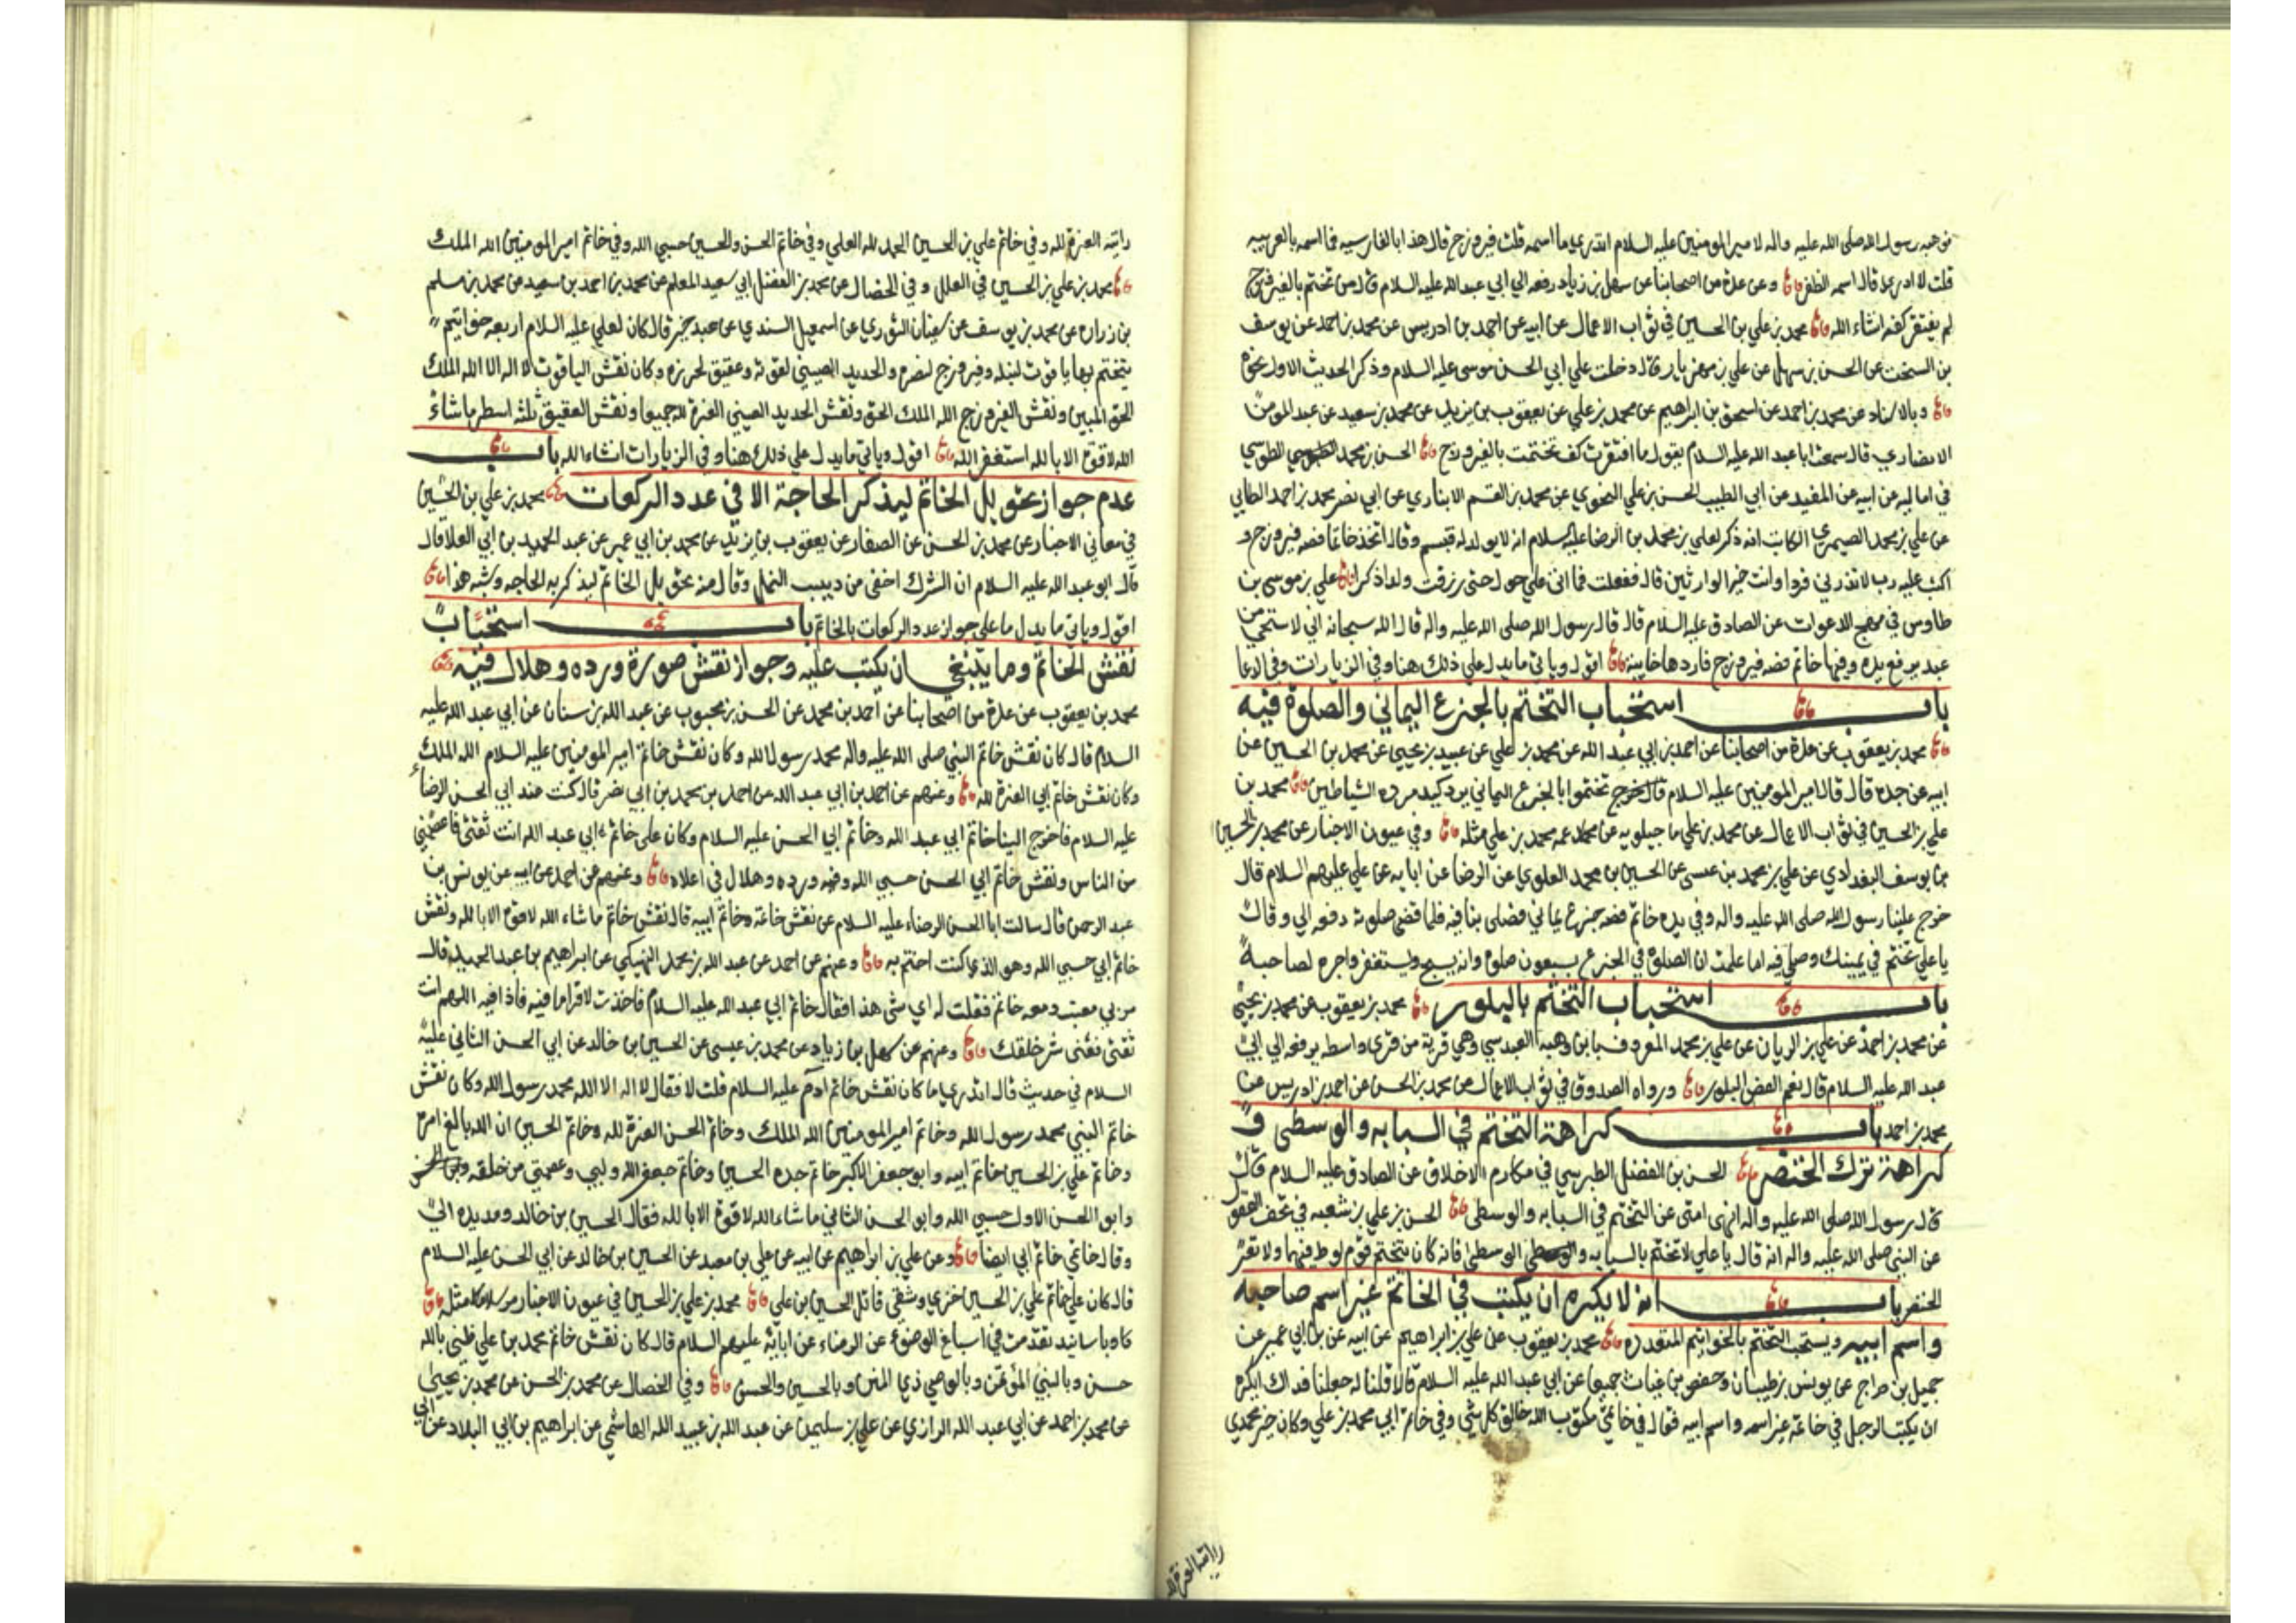 وهبه رسول الله صلى الله عليه واله لامير المومنين عليه السلام اتدري ما اسمه قلت فيروزج قال هذا بالفارسيه فما اسمه بالعربيه
قلت لا ادري قال اسمه الظفر وعن عدة من اصحابنا عن سهل بن زياد رفعه الي ابي عبد الله عليه السلام قال من تختم بالفيروزج
لم يفتقر كفه انشاء الله محمد بن علي بن الحسين في ثواب الاعمال عن ابيه عن احمد بن ادريس عن محمد بن احمد عن يوسف
بن السخت عن الحسن بن سهل عن علي بن مهزيار قال دخلت علي ابي الحسن موسى عليه السلام وذكر الحديث الاول نحوه
وبالاسناد عن محمد بن احمد عن اسحق بن ابراهيم عن محمد بن علي عن يعقوب بن يزيد عن محمد بن سعيد عن عبد المومن
الانصاري قال سمعت ابا عبد الله عليه السلام يقول ما افتقرت كف تختمت بالفيروزج الحسن بن محمد الطوسي
في اماليه عن ابيه عن المفيد عن ابي الطيب الحسن بن علي النحوي عن محمد بن القسم الانباري عن ابي نصر محمد بن احمد الطايي
عن علي بن محمد الصيمري الكاتب انه ذكر لعلي بن محمد بن الرضا عليه السلام انه لا يولد له فتبسم وقال اتخذ خاتما فصه فيروزج و
اكتب عليه رب لا تذرني فردا وانت خير الوارثين قال ففعلت فما اتى علي حول حتى رزقت ولدا ذكرا علي بن موسى بن
طاوس في مهج الدعوات عن الصادق عليه السلام قال قال رسول الله صلى الله عليه واله قال الله سبحانه اني لاستحيي من
عبد يرفع يده وفيها خاتم فصه فيروزج فاردها خايبة اقول وياتي ما يدل علي ذلك هنا وفي الزيارات وفي الدعا
باب استحباب التختم بالجزع اليماني والصلوة فيه
محمد بن يعقوب عن عدة من اصحابنا عن احمد بن ابي عبد الله عن محمد بن علي عن عبيد بن يحيى عن محمد بن الحسين عن
ابيه عن جده قال قال امير المومنين عليه السلام تختموا بالجزع اليماني يرد كيد مردة الشياطين محمد بن
علي بن الحسين في ثواب الاعمال عن محمد بن علي ماجيلويه عن عمه محمد بن علي مثله وفي عيون الاخبار عن محمد بن الحسين
بن يوسف البغدادي عن علي بن محمد بن عيسى عن الحسين بن محمد العلوي عن الرضا عن ابايه عن علي عليهم السلام قال
خرج علينا رسول الله صلى الله عليه واله وفي يده خاتم فصه جزع يماني فصلى بنا فيه فلما قضى صلوته دفعه الي وقال
يا علي تختم في يمينك وصلي فيه اما علمت ان الصلوة في الجزع سبعون صلوة وانه يسبح ويستغفر واجره لصاحبه
باب استحباب التختم بالبلور محمد بن يعقوب عن محمد بن يحيى
عن محمد بن احمد عن علي بن الريان عن علي بن محمد المعروف بابن وهبه العبدسي وهي قرية من قرى واسط يرفعه الي ابي
عبد الله عليه السلام قال نعم الفص البلور ورواه الصدوق في ثواب الاعمال عن محمد بن الحسن عن احمد بن ادريس عن
محمد بن احمد باب كراهة التختم في السبابه والوسطى و
كراهة ترك الخنصر الحسن بن الفضل الطبرسي في مكارم الاخلاق عن الصادق عليه السلام قال
قال رسول الله صلى الله عليه واله انهى امتى عن التختم في السبابه والوسطى الحسن بن علي بن شعبه في تحف العقول
عن النبي صلى الله عليه واله انه قال يا علي لا تختم بالسبابه والوسطى فانه كان يتختم قوم لوط فيهما ولا تعر
الخنصر باب انه لا يكره ان يكتب في الخاتم غير اسم صاحبه
واسم ابيه ويستحب التختم بالخواتيم المتعدده محمد بن يعقوب عن علي بن ابراهيم عن ابيه عن بن ابي عمير عن
جميل بن دراج عن يونس بن ظبيان وحفص بن غياث جميعا عن ابي عبد الله عليه السلام قالا قلنا له جعلنا فداك ايكره
ان يكتب الرجل في خاتمه غير اسمه واسم ابيه فقال في خاتمي مكتوب الله خالق كل شي وفي خاتم ابي محمد بن علي وكان خير محمدي
رايته العزة لله
رايته العزة لله وفي خاتم علي بن الحسين الحمد لله العلي وفي خاتم الحسن والحسين حسبي الله وفي خاتم امير المومنين الله الملك
محمد بن علي بن الحسين في العلل وفي الخصال عن محمد بن الفضل ابي سعيد المعلم عن محمد بن احمد بن سعيد عن محمد بن مسلم
بن زراره عن محمد بن يوسف عن سفيان الثوري عن اسمعيل السندي عن عبد خير قال كان لعلي عليه السلام اربعه خواتيم
يتختم بها ياقوت لنبله وفيروزج لنصره والحديد الصيني لقوته وعقيق لحرزه وكان نقش الياقوت لا اله الا الله الملك
الحق المبين ونقش الفيروزج الله الملك الحق ونقش الحديد الصيني العزة لله جميعا ونقش العقيق ثلثه اسطر ما شاء
الله لا قوة الا بالله استغفر الله اقول وياتي ما يدل علي ذلك هنا وفي الزيارات انشاء الله باب
عدم جواز تحويل الخاتم ليذكر الحاجة الا في عدد الركعات محمد بن علي بن الحسين
في معاني الاخبار عن محمد بن الحسن عن الصفار عن يعقوب بن يزيد عن محمد بن ابي عمير عن عبد الحميد بن ابي العلا قال
قال ابو عبد الله عليه السلام ان الشرك اخفى من دبيب النمل وقال منه تحويل الخاتم ليذكر به الحاجه وشبه هذا
اقول وياتي ما يدل على جواز عدد الركعات بالخاتم باب استحباب
نقش الخاتم وما ينبغي ان يكتب عليه وجواز نقش صورة ورده وهلال فيه
محمد بن يعقوب عن عدة من اصحابنا عن احمد بن محمد عن الحسن بن محبوب عن عبد الله بن سنان عن ابي عبد الله عليه
السلام قال كان نقش خاتم النبي صلى الله عليه واله محمد رسول الله وكان نقش خاتم امير المومنين عليه السلام الله الملك
وكان نقش خاتم ابي العزة لله وعنهم عن احمد بن ابي عبد الله عن احمد بن محمد بن ابي نصر قال كنت عند ابي الحسن الرضاء
عليه السلام فاخرج الينا خاتم ابي عبد الله وخاتم ابي الحسن عليه السلام وكان على خاتم ابي عبد الله انت ثقتي فاعصمني
من الناس ونقش خاتم ابي الحسن حسبي الله وفيه ورده وهلال في اعلاه وعنهم عن احمد عن ابيه عن يونس بن
عبد الرحمن قال سالت ابا الحسن الرضاء عليه السلام عن نقش خاتمه وخاتم ابيه قال نقش خاتم ما شاء الله لا قوة الا بالله ونقش
خاتم ابي حسبي الله وهو الذي كنت اختم به وعنهم عن احمد عن عبد الله بن محمد النهيكي عن ابراهيم بن عبد الحميد قال
مر بي معتب ومعه خاتم فقلت له اي شي هذا فقال خاتم ابي عبد الله عليه السلام فاخذت لاقرا ما فيه فاذا فيه اللهم انت
ثقتي فقني شر خلقك وعنهم عن سهل بن زياد عن محمد بن عيسى عن الحسين بن خالد عن ابي الحسن الثاني عليه
السلام في حديث قال اتدري ما كان نقش خاتم ادم عليه السلام قلت لا فقال لا اله الا الله محمد رسول الله وكان نقش
خاتم النبي محمد رسول الله وخاتم امير المومنين الله الملك وخاتم الحسن العزة لله وخاتم الحسين ان الله بالغ امره
وخاتم علي بن الحسين خاتم ابيه وابو جعفر الاكبر خاتم جده الحسين وخاتم جعفر الله وليي وعصمتي من خلقه
وابو الحسن الاول حسبي الله وابو الحسن الثاني ما شاء الله لا قوة الا بالله فقال الحسين بن خالد ومد يده الي
وقال خاتمي خاتم ابي ايضا وعن علي بن ابراهيم عن ابيه عن علي بن معبد عن الحسين بن خالد عن ابي الحسن عليه السلام
قال كان علي خاتم علي بن الحسين خزي وشقي قاتل الحسين بن علي محمد بن علي بن الحسين في عيون الاخبار مرسلا مثله
وباسانيد تقدمت في اسباغ الوضوء عن الرضاء عن ابائه عليهم السلام قال كان نقش خاتم محمد بن علي ظني بالله
حسن وبالنبي المؤتمن وبالوصي ذي المنن وبالحسين والحسن وفي الخصال عن محمد بن الحسن عن محمد بن يحيى
عن محمد بن احمد عن ابي عبد الله الرازي عن علي بن سليمن عن عبد الله بن عبيد الله الهاشمي عن ابراهيم بن ابي البلاد عن ابي